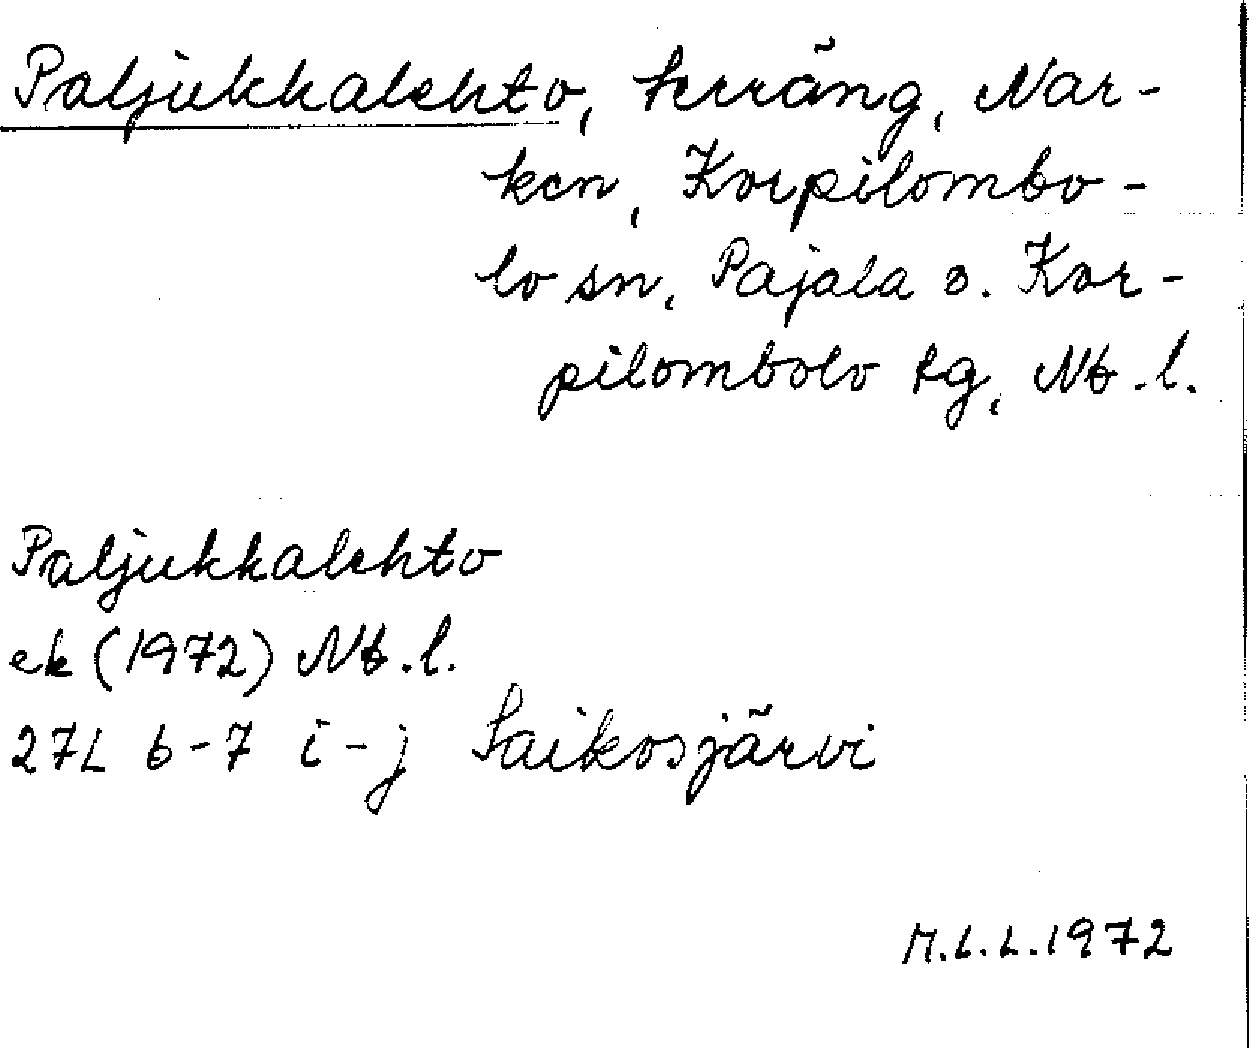 Paljukkalehto, terräng, Nar-
ken, Korpilombo-
lo sn, Pajala o. Kor-
pilombolo tg, Nb.l.
Paljukkalehto
ek (1972) Nb.l.
27L 6-7 i-j Saikosjärvi
M.L.L.1972